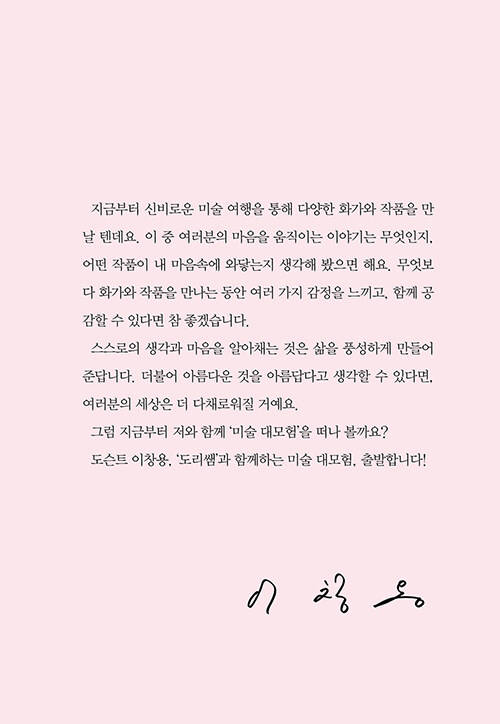 지금부터 신비로운 미술 여행을 통해 다양한 화가와 작품을 만
날 텐데요. 이 중 여러분의 마음을 움직이는 이야기는 무엇인지,
어떤 작품이 내 마음속에 와닿는지 생각해 봤으면 해요. 무엇보
다 화가와 작품을 만나는 동안 여러 가지 감정을 느끼고, 함께 공
감할 수 있다면 참 좋겠습니다.
스스로의 생각과 마음을 알아채는 것은 삶을 풍성하게 만들어
준답니다. 더불어 아름다운 것을 아름답다고 생각할 수 있다면,
여러분의 세상은 더 다채로워질 거예요.
그럼 지금부터 저와 함께 ‘미술 대모험’을 떠나 볼까요?
도슨트 이창용, ‘도리쌤’과 함께하는 미술 대모험, 출발합니다!
이 창용